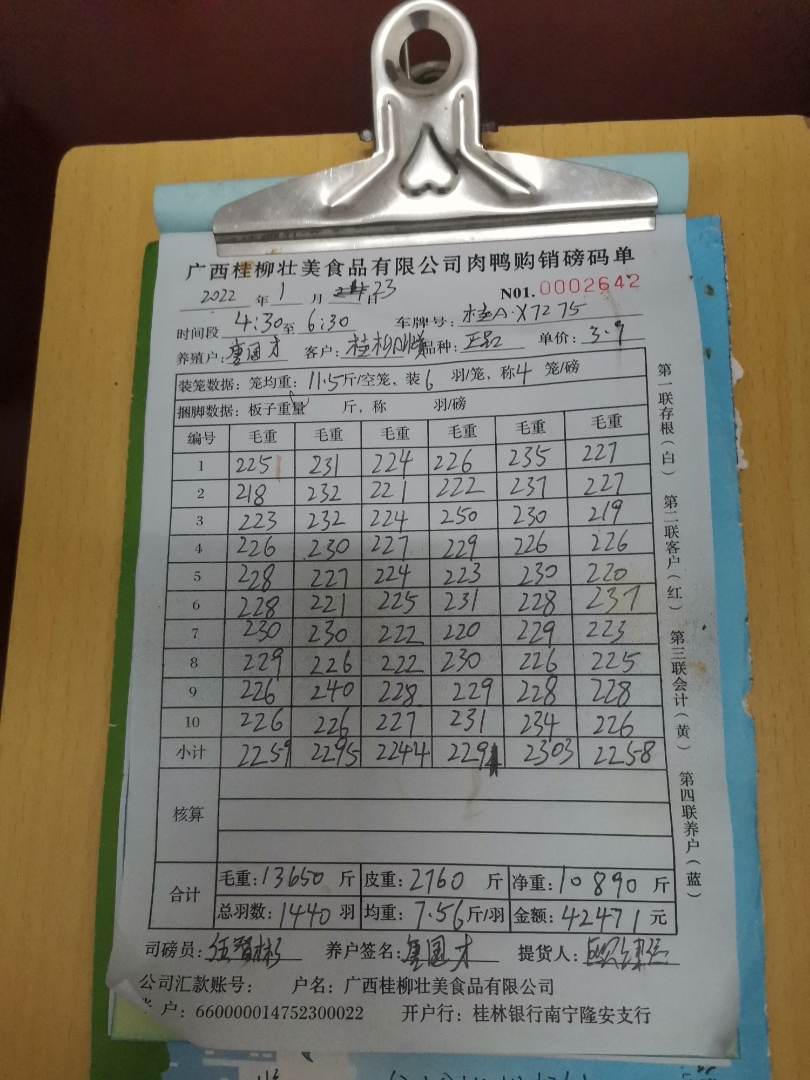 广西桂柳壮美食品有限公司肉鸭购销磅码单
2022 年 1 月 23 日 N01.0002642
时间段 4:30 至 6:30 车牌号: 桂A·X7275
养殖户: 唐国才 客户: 桂柳 品种: 正品 单价: 3.9
装笼数据: 笼均重: 11.5 斤/空笼, 装 6 羽/笼, 称 4 笼/磅
捆脚数据: 板子重量 斤, 称 羽/磅
编号 毛重 毛重 毛重 毛重 毛重 毛重
1 225 231 224 226 235 227
2 218 232 221 222 237 227
3 223 232 224 250 230 219
4 226 230 227 229 226 226
5 228 227 224 223 230 220
6 228 221 225 231 228 237
7 230 230 222 220 229 223
8 229 226 222 230 226 225
9 226 240 228 229 228 228
10 226 226 227 231 234 226
小计 2259 2295 2244 2291 2303 2258
核算
合计 毛重: 13650 斤 皮重: 2760 斤 净重: 10890 斤
总羽数: 1440 羽 均重: 7.56 斤/羽 金额: 42471 元
司磅员: 养户签名: 唐国才 提货人:
公司汇款账号: 户名: 广西桂柳壮美食品有限公司
户: 660000014752300022 开户行: 桂林银行南宁隆安支行
第一联存根(白) 第二联客户(红) 第三联会计(黄) 第四联养户(蓝)